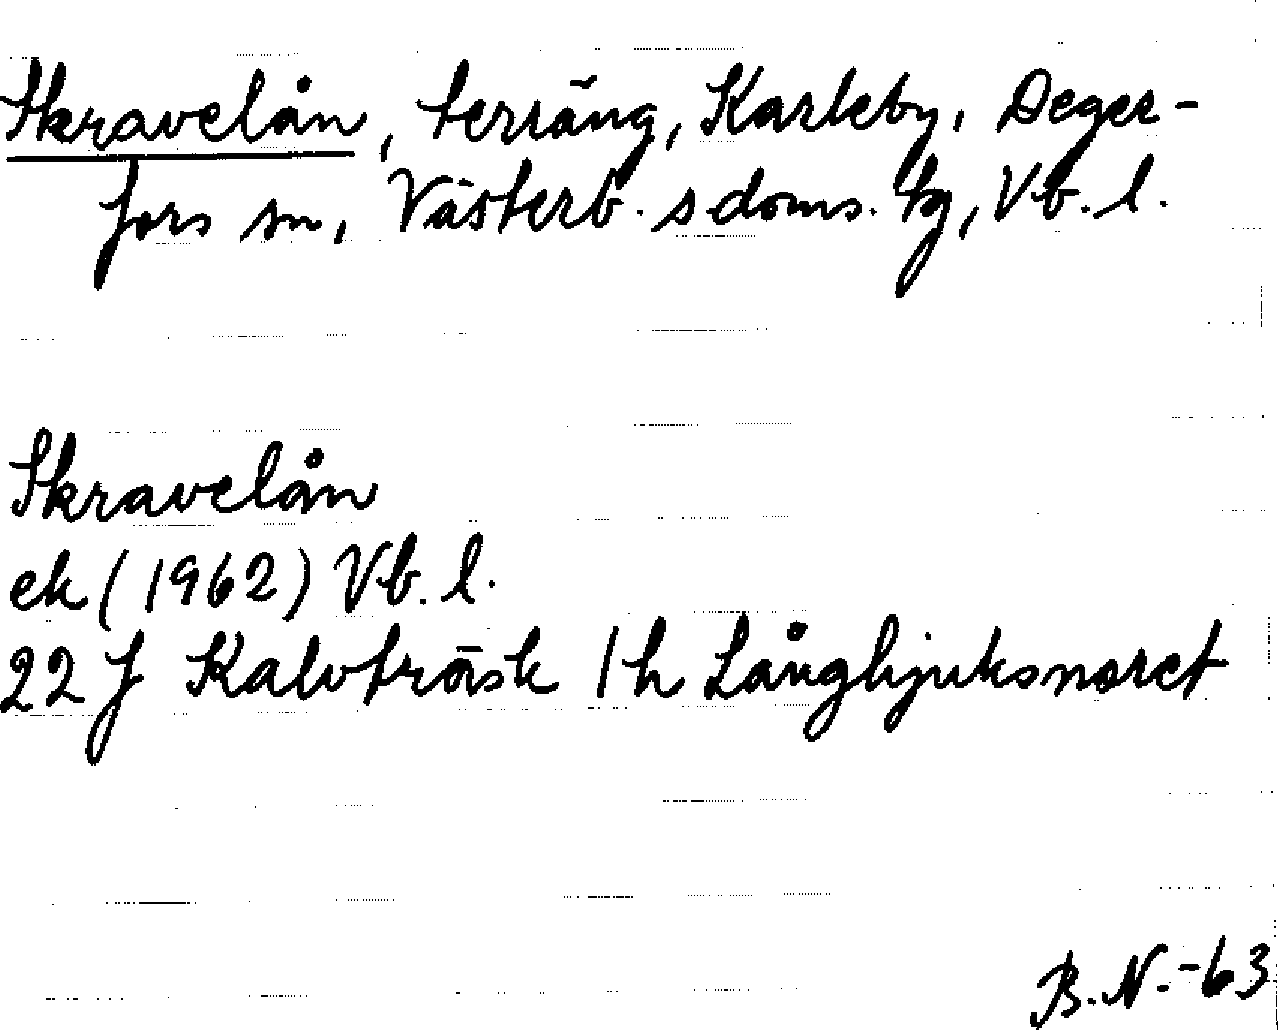 Skravelån, terräng, Karleby, Deger-
fors sn, Västerb. s doms. tg, Vb. l.
Skravelån
ek (1962) Vb. l.
22 J Kalvträsk 1 h Långhjuksnoret
B.N.-63